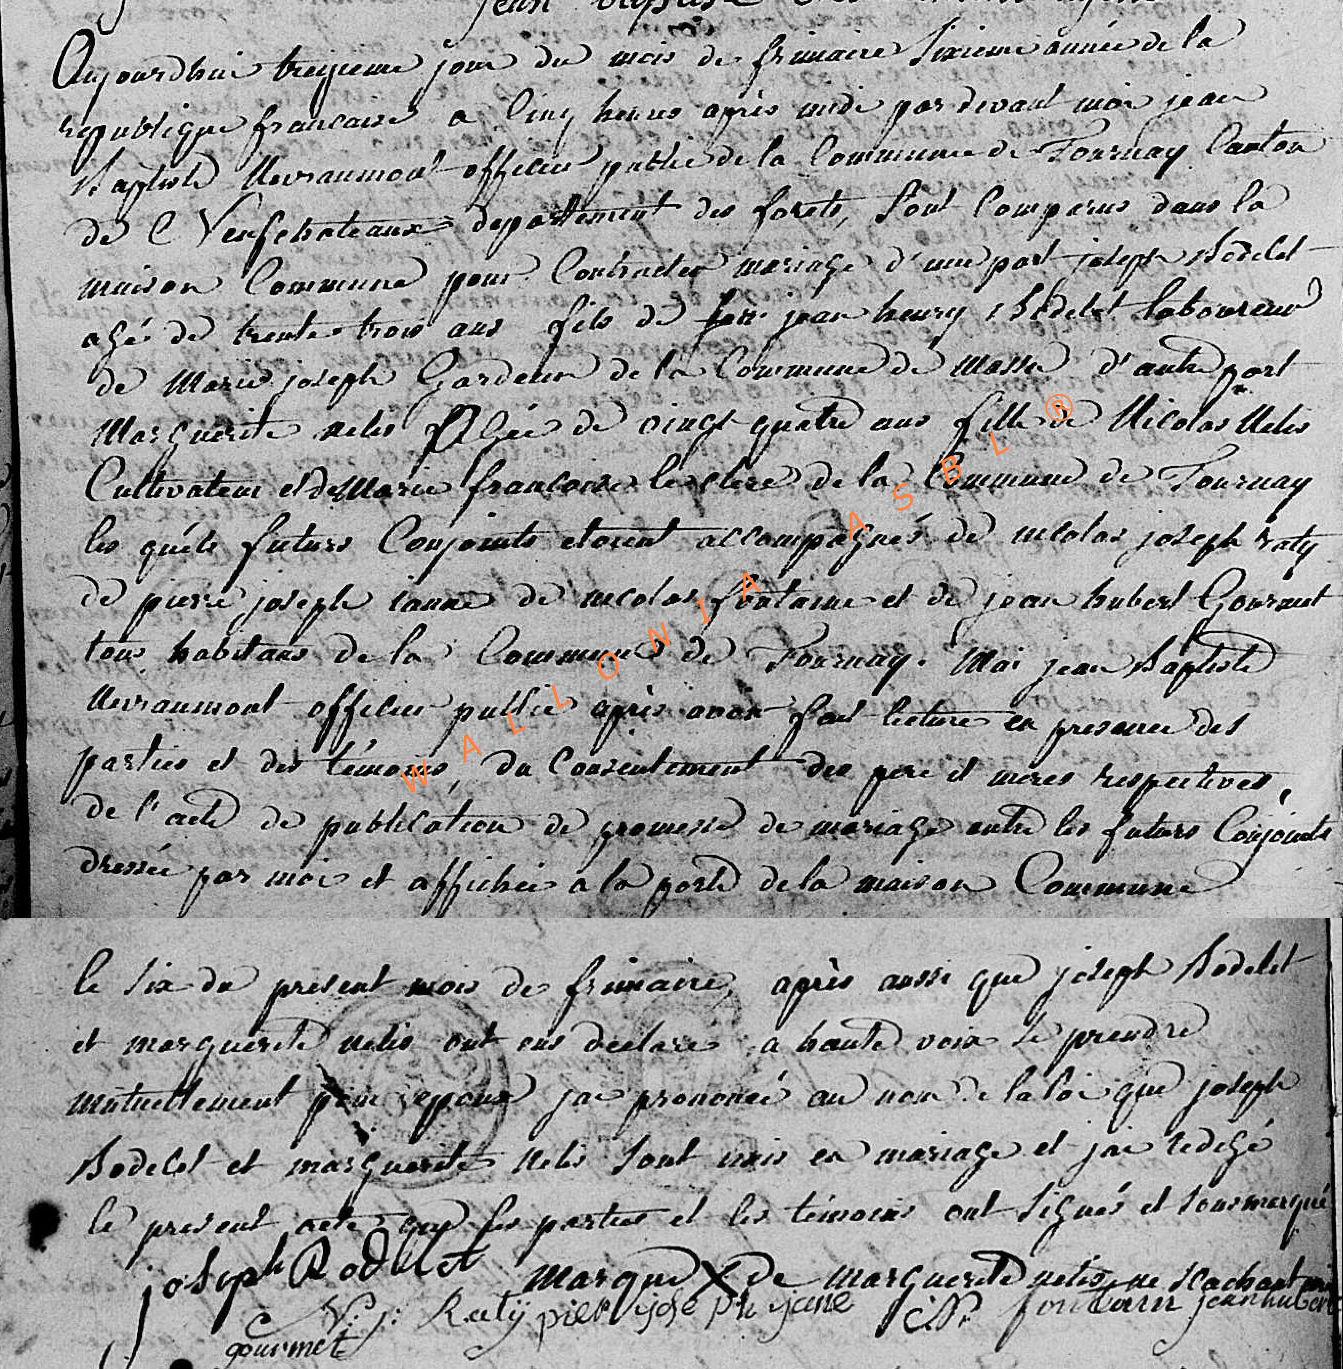 jean baptiste
Aujourdhui treizieme jour du mois de frimaire Sixieme année de la
republique francaise a Cinq heures après midi par devant moi jean
Baptiste Nevraumont officier public de la Commune de Tournay Canton
de Neufchateaux departement des forets, Sont Comparus dans la
maison Commune pour Contracter mariage d'une part joseph Bodelet
agé de trente trois ans fils de feu jean henry Bodelet laboureur
de Marie joseph Gardeur de la Commune de Massu d'autre part
Marguerite nelis Agée de vingt quatre ans fille de Nicolas Nelis
Cultivateur et de Marie francoise le clere de la Commune de Tournay
les quels futurs Conjoints etoient accompagnés de nicolas joseph raty
de pierre joseph janne de nicolas fontaine et de jean hubert Gourmet
tous habitans de la Commune de Tournay. Moi jean Baptiste
Nevraumont officier public après avoir fait lecture en presence des
parties et des témoins, du Consentement des pere et meres respectives,
de l'acte de publication de promesse de mariage entre les futurs Conjoints
dressée par moi et affichée a la porte de la maison Commune
WALLONIA ASBL ®
le Six du present mois de frimaire, après aussi que joseph Bodelet
et marguerite nelis ont eus declaré a haute voix Se prendre
mutuellement pour epoux jai prononcé au nom de la loi que joseph
Bodelet et marguerite nelis Sont unis en mariage et jai redigé
le present acte que les parties et les témoins ont Signés et Sousmarqué
joseph Bodelet marque X de marguerite nelis ne Scachant
N: j: Raty pierre joseph jane N. fontaine jean hubert
gourmet